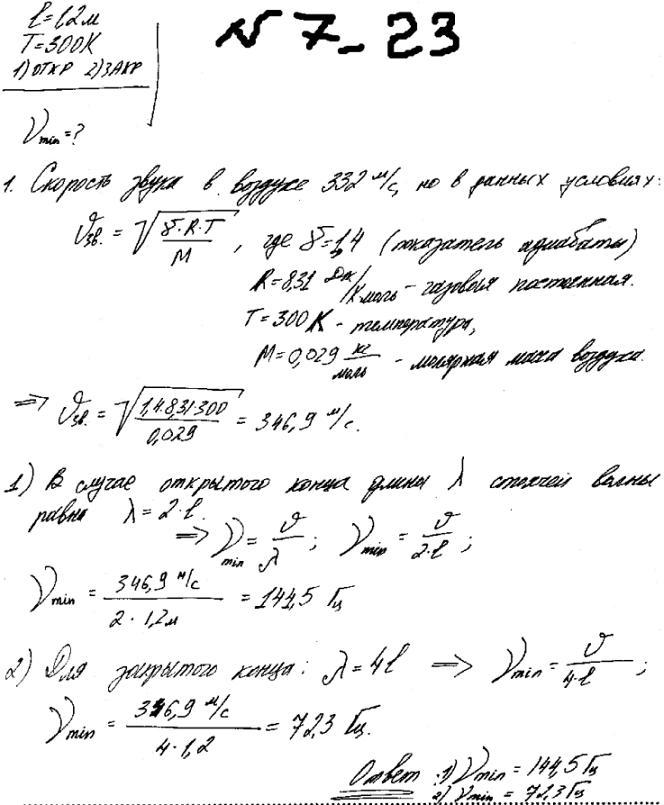 l=1,2м
T=300К
1) ОТКР 2) ЗАКР
N 7-23
ν min = ?
1. Скорость звука в воздухе 332 м/с, но в данных условиях:
υ зв. = √(γ·R·T / M), где γ=1,4 (показатель адиабаты)
R=8,31 Дж/К моль - газовая постоянная.
T=300К - температура,
M=0,029 кг/моль - молярная масса воздуха.
=> υ зв. = √(1,4·8,31·300 / 0,029) = 346,9 м/с.
1) В случае открытого конца длина λ стоячей волны
равна λ=2·l.
=> ν min = υ/λ ; ν min = υ/2·l ;
ν min = 346,9 м/с / 2·1,2м = 144,5 Гц
2) Для закрытого конца: λ=4l => ν min = υ/4·l ;
ν min = 346,9 м/с / 4·1,2 = 72,3 Гц.
Ответ: 1) ν min = 144,5 Гц
2) ν min = 72,3 Гц